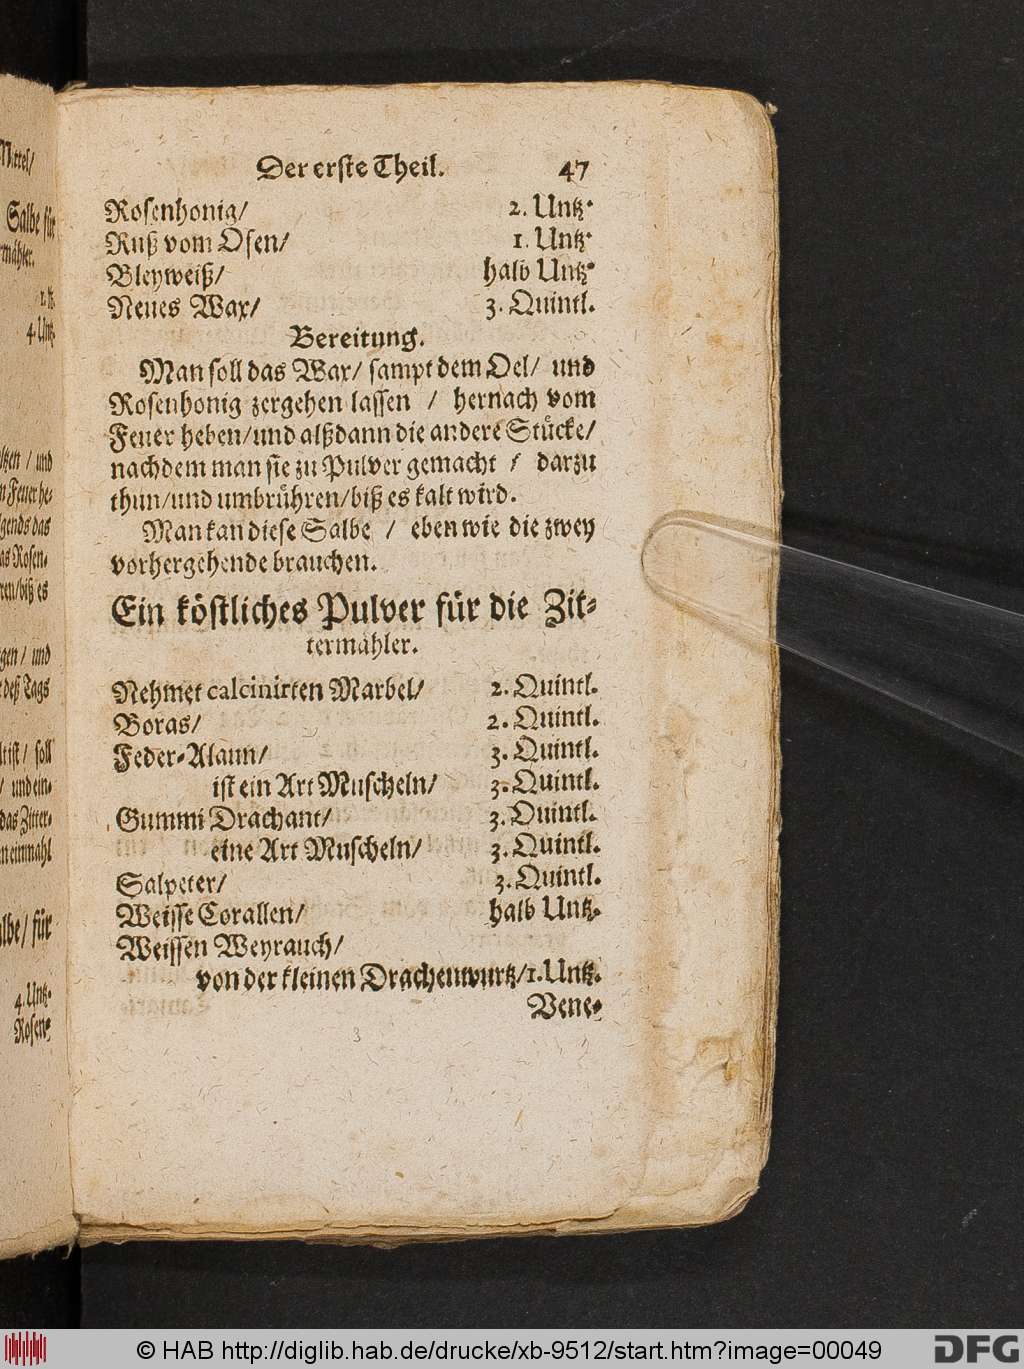 Mittel/
Salbe für
rmähler.
4. Untz
ltzen / und
n Feuer he-
gends das
as Rosen-
ren/biß es
gen / und
deß Tags
lt ist / soll
/ und ein-
das Zitter-
n einmahl
albe / für
4. Untz.
Rosen-
Der erste Theil. 47
Rosenhonig/ 2. Untz.
Ruß vom Ofen/ 1. Untz.
Bleyweiß/ halb Untz.
Neues Wax/ 3. Quintl.
Bereitung.
Man soll das Wax/ sampt dem Oel/ und
Rosenhonig zergehen lassen / hernach vom
Feuer heben/und alßdann die andere Stücke/
nachdem man sie zu Pulver gemacht / darzu
thun/und umbrühren/biß es kalt wird.
Man kan diese Salbe / eben wie die zwey
vorhergehende brauchen.
Ein köstliches Pulver für die Zit-
termähler.
Nehmet calcinirten Marbel/ 2. Quintl.
Boras/ 2. Quintl.
Feder-Alaun/ 3. Quintl.
ist ein Art Muscheln/ 3. Quintl.
Gummi Drachant/ 3. Quintl.
eine Art Muscheln/ 3. Quintl.
Salpeter/ 3. Quintl.
Weisse Corallen/ halb Untz.
Weissen Weyrauch/
von der kleinen Drachenwurtz/1. Untz.
Vene-
3
© HAB http://diglib.hab.de/drucke/xb-9512/start.htm?image=00049
DFG